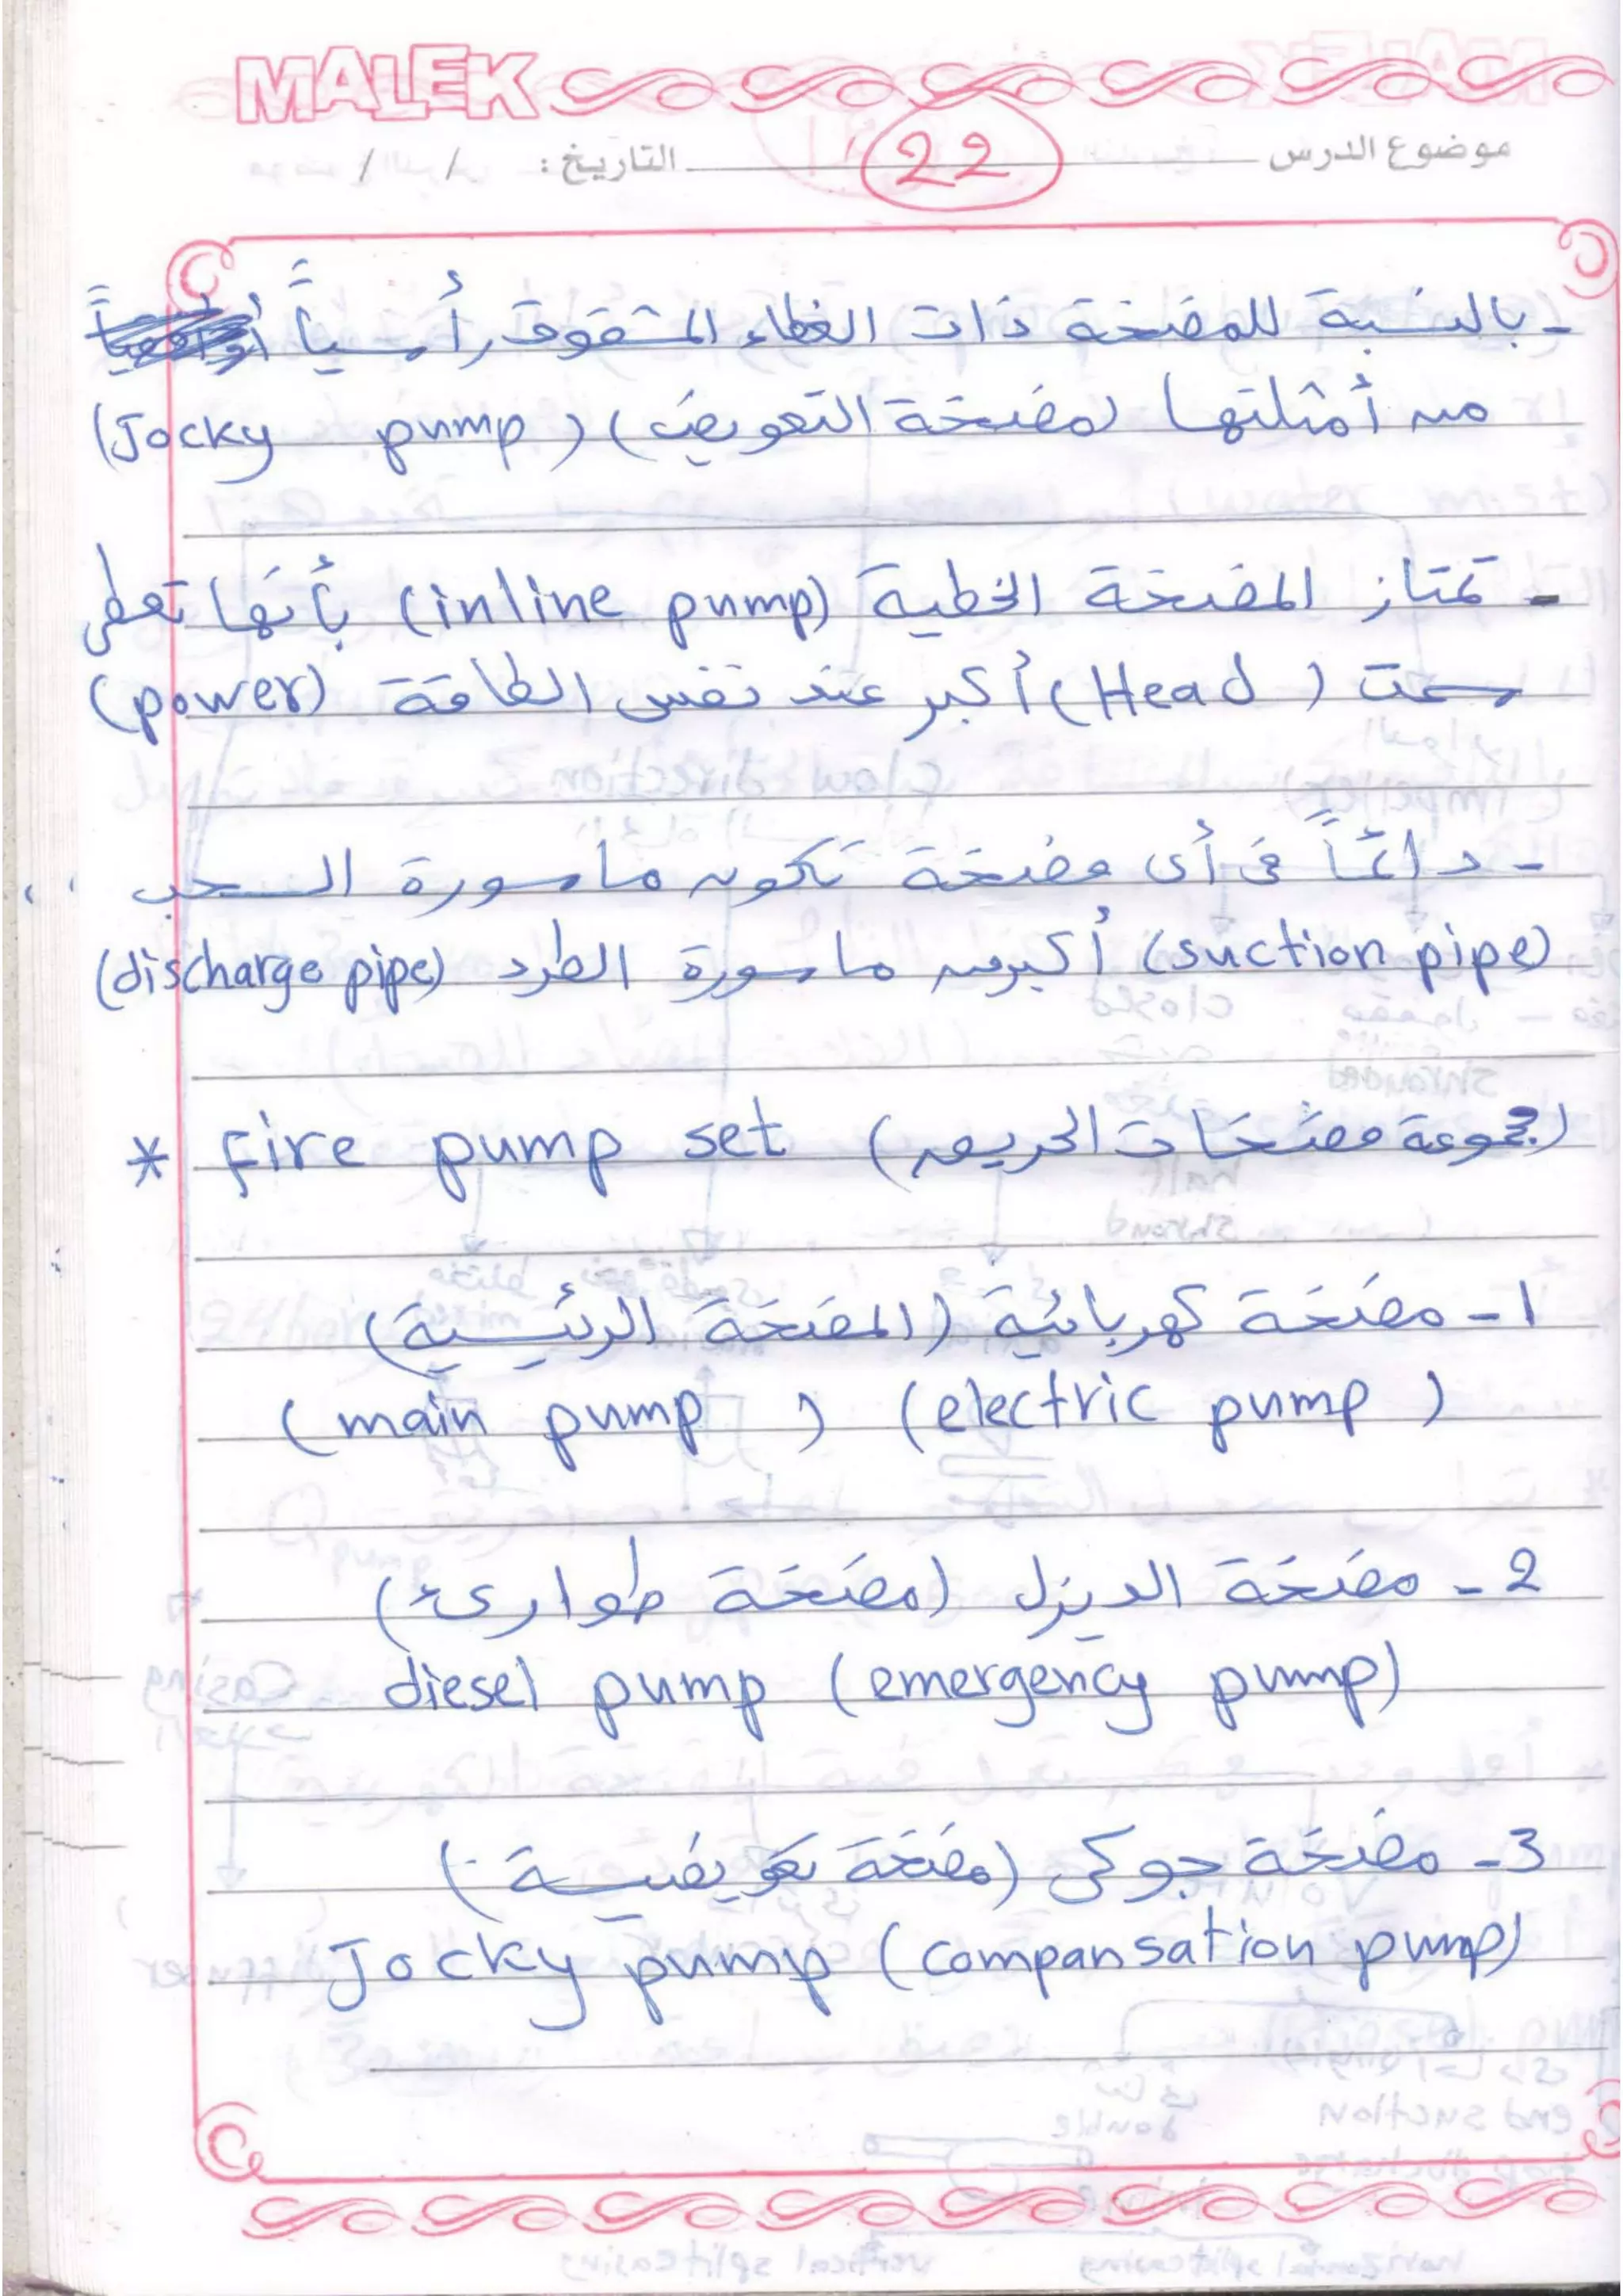 MALEK
موضوع الدرس 22 التاريخ: / /
- بالنسبة للمضخة ذات الغطاء المشقوق رأسياً
من أمثلتها (مضخة التعويض) (Jocky pump)
- تمتاز المضخة الخطية (inline pump) بأنها تعطى
سمت (Head) أكبر عند نفس الطاقة (power)
- دائماً فى أى مضخة تكون ماسورة السحب
(suction pipe) أكبر من ماسورة الطرد (discharge pipe)
* Fire pump set (مجموعة مضخات الحريق)
1- مضخة كهربائية (المضخة الرئيسية)
(main pump) (electric pump)
2- مضخة الديزل (مضخة طوارئ)
diesel pump (emergency pump)
3- مضخة جوكى (مضخة تعويضية)
Jocky pump (compansation pump)